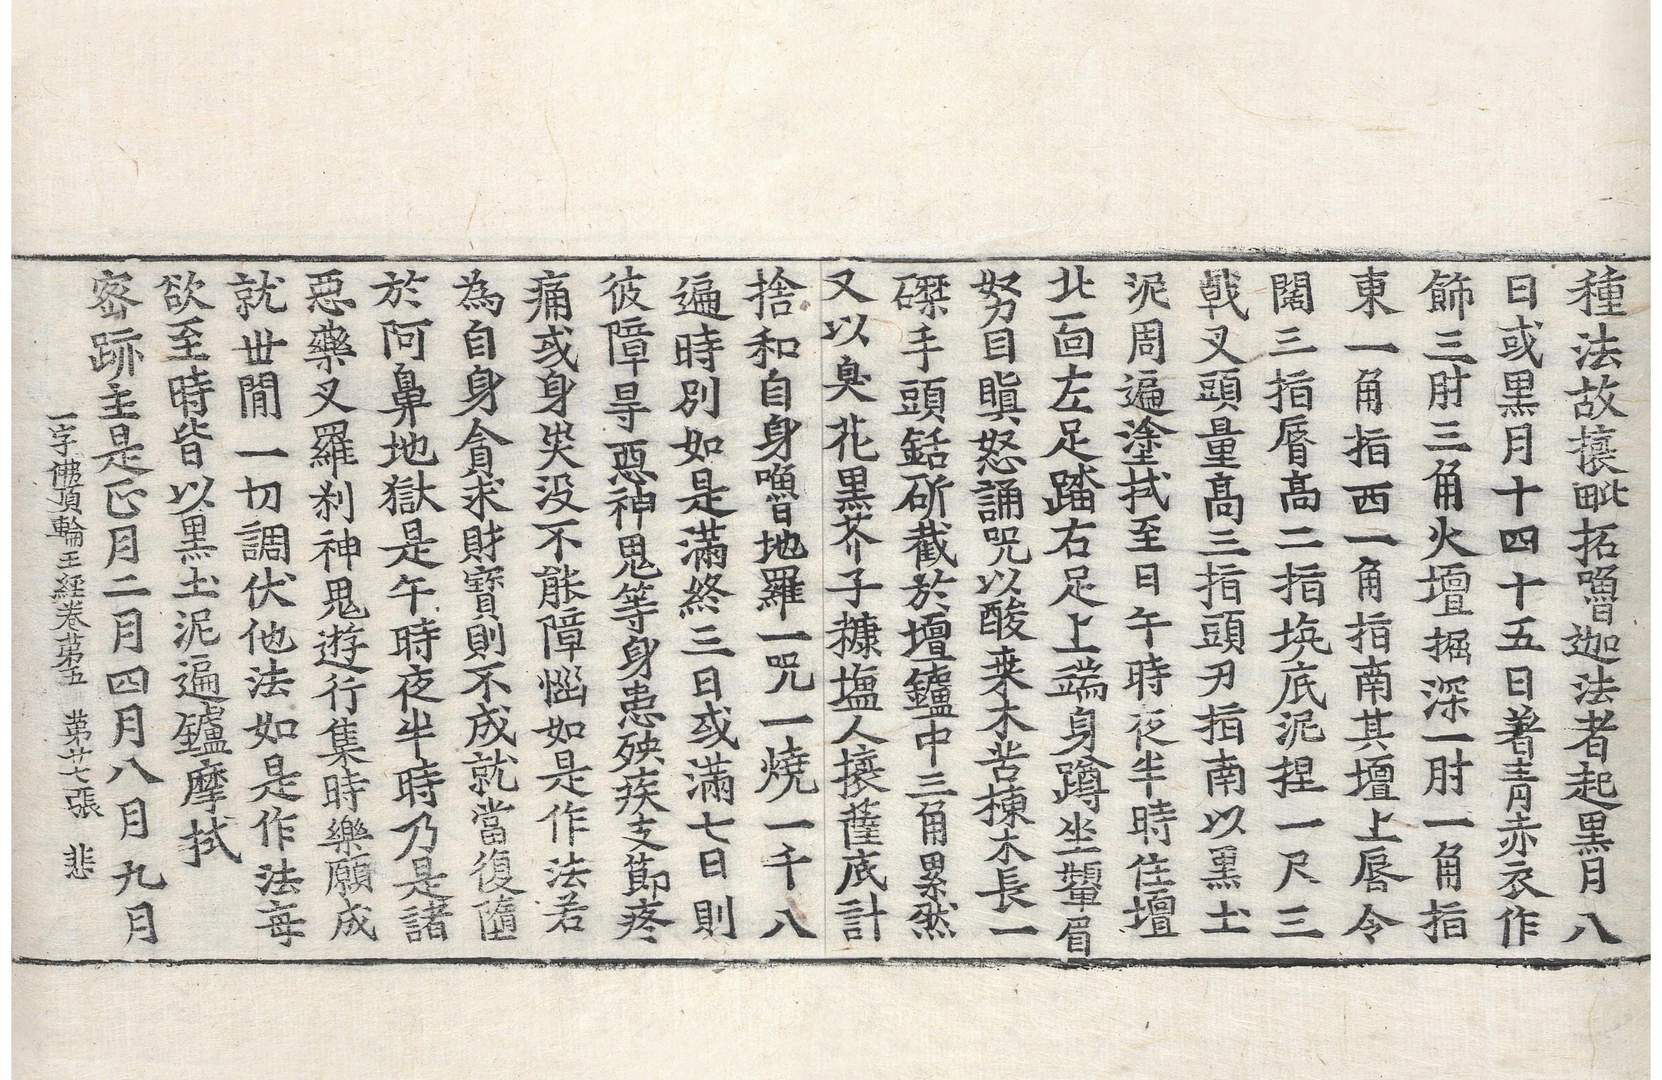 種法故攘毗拓嚕迦法者起黒月八
日或黒月十四十五日著青赤衣作
飾三肘三角火壇掘深一肘一角指
東一角指西一角指南其壇上脣令
闊三指脣高二指埦底泥捏一尺三
戟叉頭量高三指頭刃指南以黒土
泥周遍塗拭至日午時夜半時住壇
北面左足踏右足上端身蹲坐顰眉
努目瞋怒誦呪以酸棗木苦楝木長一
磔手頭銛斫截於壇鑪中三角累然
又以臭花黒芥子糠塩人攘藍底計
捨和自身嚕地羅一呪一燒一千八
遍時別如是滿終三日或滿七日則
彼障㝵惡神鬼等身患殃疾支節疼
痛或身癸没不能障惱如是作法若
為自身貪求財寶則不成就當復墮
於阿鼻地獄是午時夜半時乃是諸
惡藥叉羅刹神鬼遊行集時樂願成
就世間一切調伏他法如是作法每
欲至時皆以黒土泥遍鑪摩拭
密跡主是正月二月四月八月九月
一字佛頂輪王經卷第五 第廿七張 悲